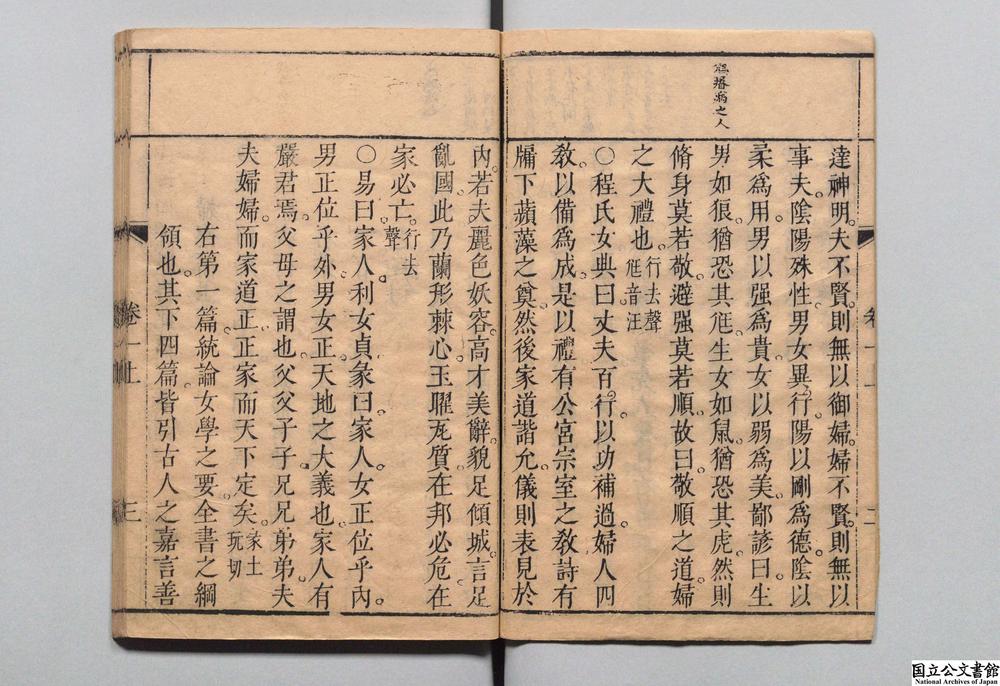 尩孱病之人
達神明。夫不賢。則無以御婦。婦不賢。則無以
事夫。陰陽殊性。男女異行。陽以剛爲德。陰以
柔爲用。男以强爲貴。女以弱爲美。鄙諺曰。生
男如狼。猶恐其尩。生女如鼠。猶恐其虎。然則
脩身莫若敬。避强莫若順。故曰。敬順之道。婦
之大禮也。行去聲尩音汪
〇程氏女典曰。丈夫百行。以功補過。婦人四
敎。以備爲成。是以禮有公宮宗室之敎。詩有
牖下蘋藻之奠。然後家道諧允。儀則表見於
內。若夫麗色妖容。高才美辭。貌足傾城。言足
亂國。此乃蘭形棘心。玉曜瓦質。在邦必危。在
家必亡。行去聲
〇易曰。家人。利女貞。彖曰。家人。女正位乎內。
男正位乎外。男女正。天地之大義也。家人有
嚴君焉。父母之謂也。父父子子。兄兄弟弟。夫
夫婦婦。而家道正。正家而天下定矣。彖土玩切
右第一篇。統論女學之要。全書之綱
領也。其下四篇。皆引古人之嘉言善
卷一上
三
国立公文書館
National Archives of Japan